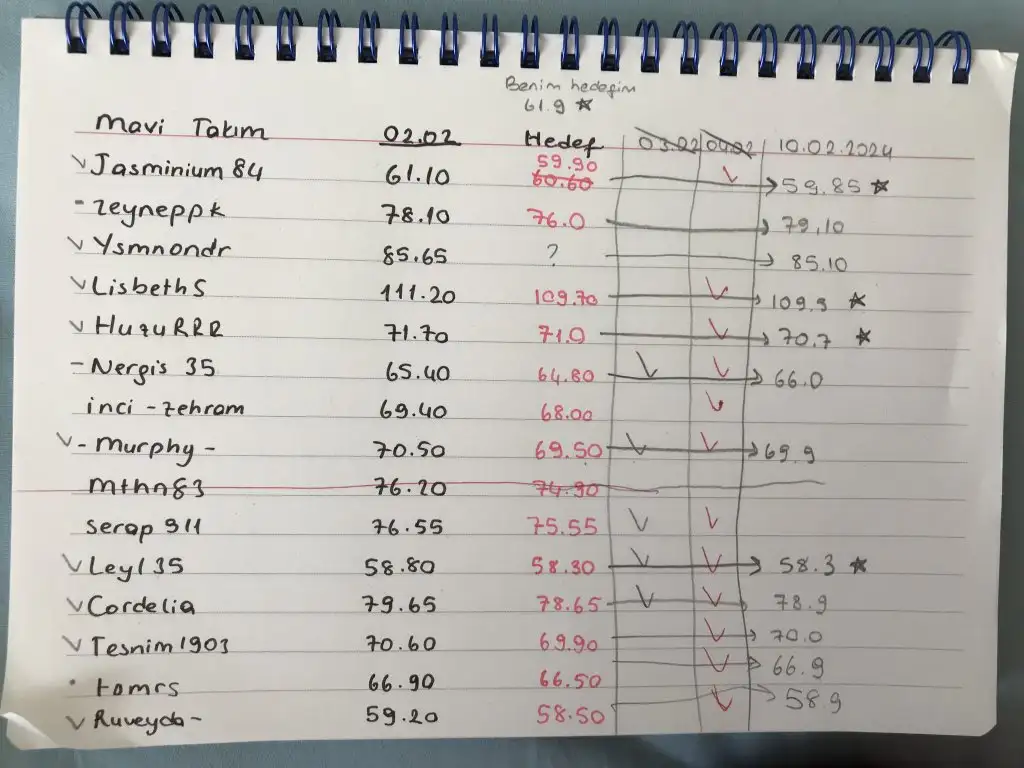 Benim hedefim
61.9 ★
Mavi Takım 02.02 Hedef 03.02 04.02 10.02.2024
59.90
✓ Jasminium 84 61.10 60.60 ✓ → 59.85 ★
- zeyneppk 78.10 76.0 → 79.10
✓ Ysmnondr 85.65 ? → 85.10
✓ LisbethS 111.20 109.70 ✓ → 109.9 ★
✓ HuzuRRR 71.70 71.0 ✓ → 70.7 ★
- Nergis 35 65.40 64.80 ✓ ✓ → 66.0
inci - zehram 69.40 68.00 ✓
✓ - Murphy - 70.50 69.50 ✓ ✓ → 69.9
Mthn83 76.20 74.90
serap 911 76.55 75.55 ✓ ✓
✓ Leyl 35 58.80 58.30 ✓ ✓ → 58.3 ★
✓ Cordelia 79.65 78.65 ✓ ✓ → 78.9
✓ Tesnim 1903 70.60 69.90 ✓ → 70.0
• tomrs 66.90 66.50 ✓ → 66.9
✓ Ruveyda - 59.20 58.50 ✓ → 58.9